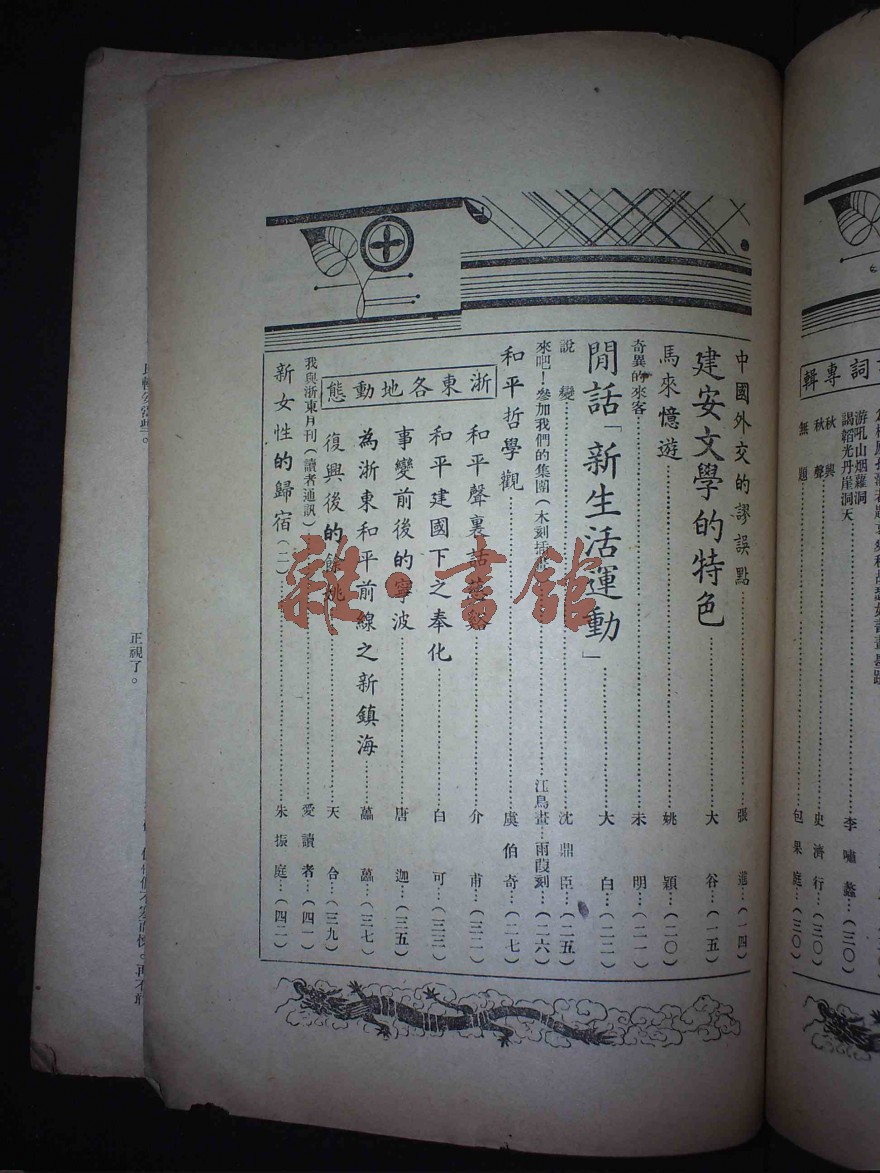 詞專輯
游吼山烟蘿洞
謁韜光丹崖洞天……李嘯蠡…(三〇)
秋興
秋聲……史濟行…(三〇)
無題……包果庭…(三〇)
中國外交的謬誤點……張…(一四)
建安文學的特色……大谷…(一五)
馬來憶遊……姚穎…(二〇)
奇異的來客……未明…(二一)
閒話「新生活運動」……大白…(二二)
說變……沈鼎臣…(二五)
來吧!參加我們的集團(木刻插畫)……江鳥畫…雨葭刻…(二六)
和平哲學觀……虞伯奇…(二七)
浙東各地動態
和平聲裏話慈谿……介甫…(三二)
和平建國下之奉化……白可…(三三)
事變前後的寧波……唐迦…(三五)
為浙東和平前線之新鎮海……藟藟…(三七)
復興後的餘姚……天合…(三九)
我與浙東月刊(讀者通訊)……愛讀者…(四一)
新女性的歸宿(二)……朱振庭…(四二)
雜·書舘
正視了。